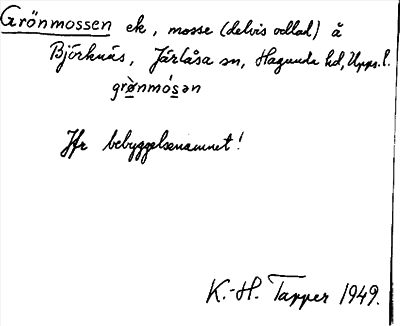 Grönmossen ek, mosse (delvis odlad) å
Björknäs, Järlåsa sn, Hagunda hd, Upps. l.
grø̀nmósən
Jfr bebyggelsenamnet!
K.-H. Tapper 1949.